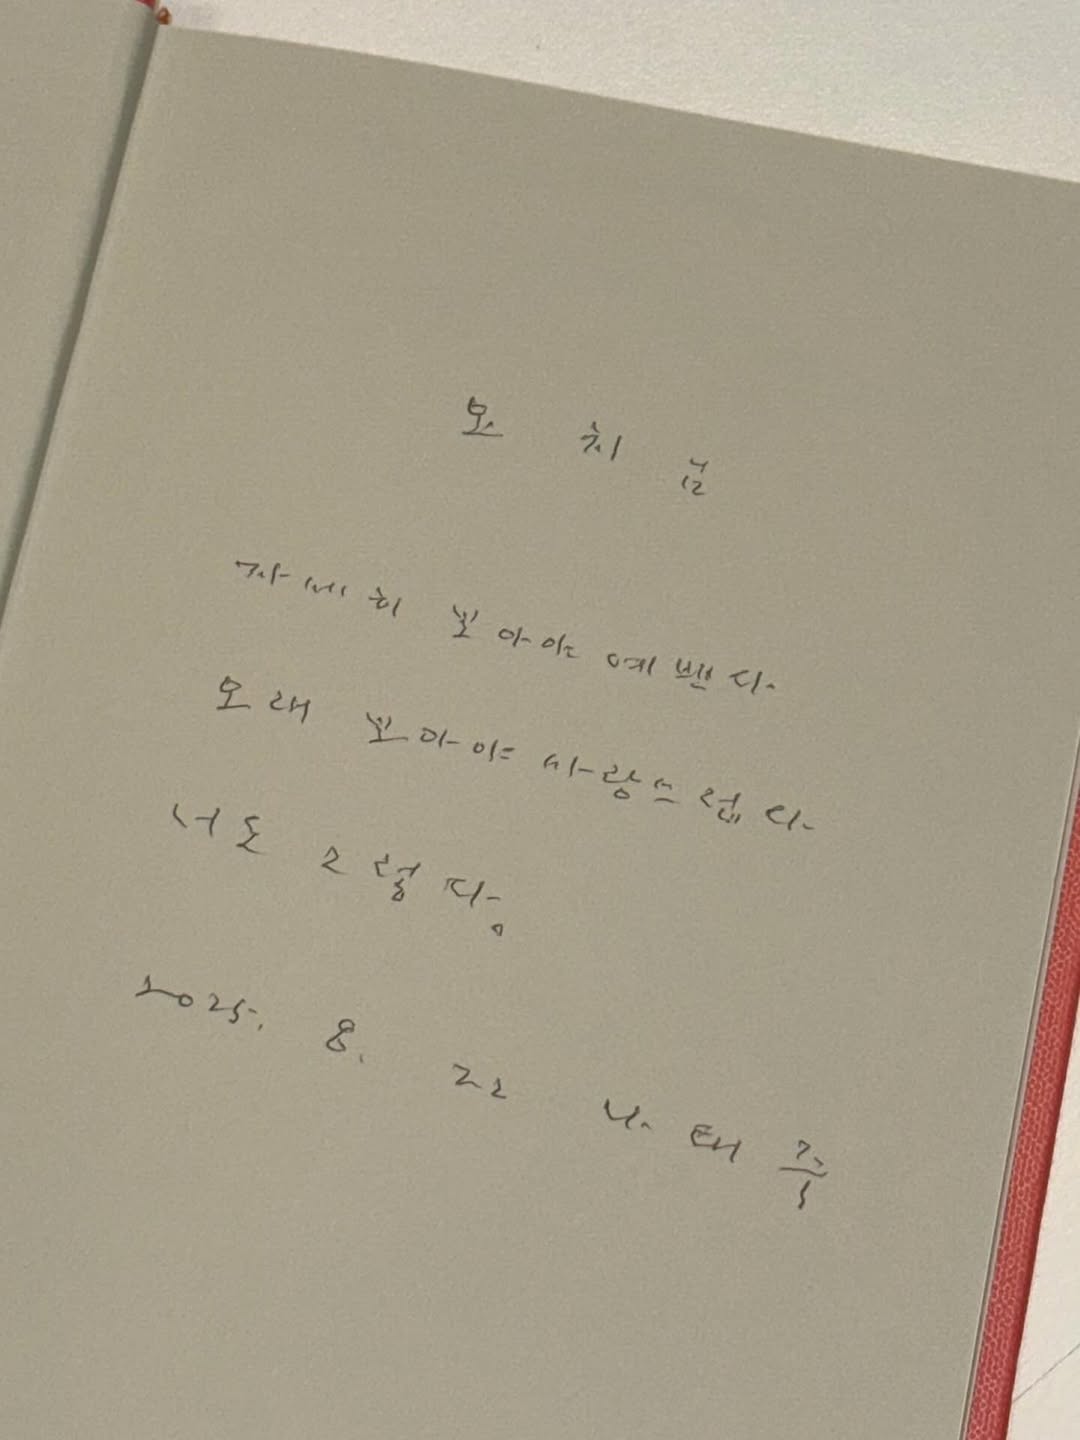 자세히 보아야 예쁘다
오래 보아야 사랑스럽다
너도 그렇다.
2025. 8. 22 나태주